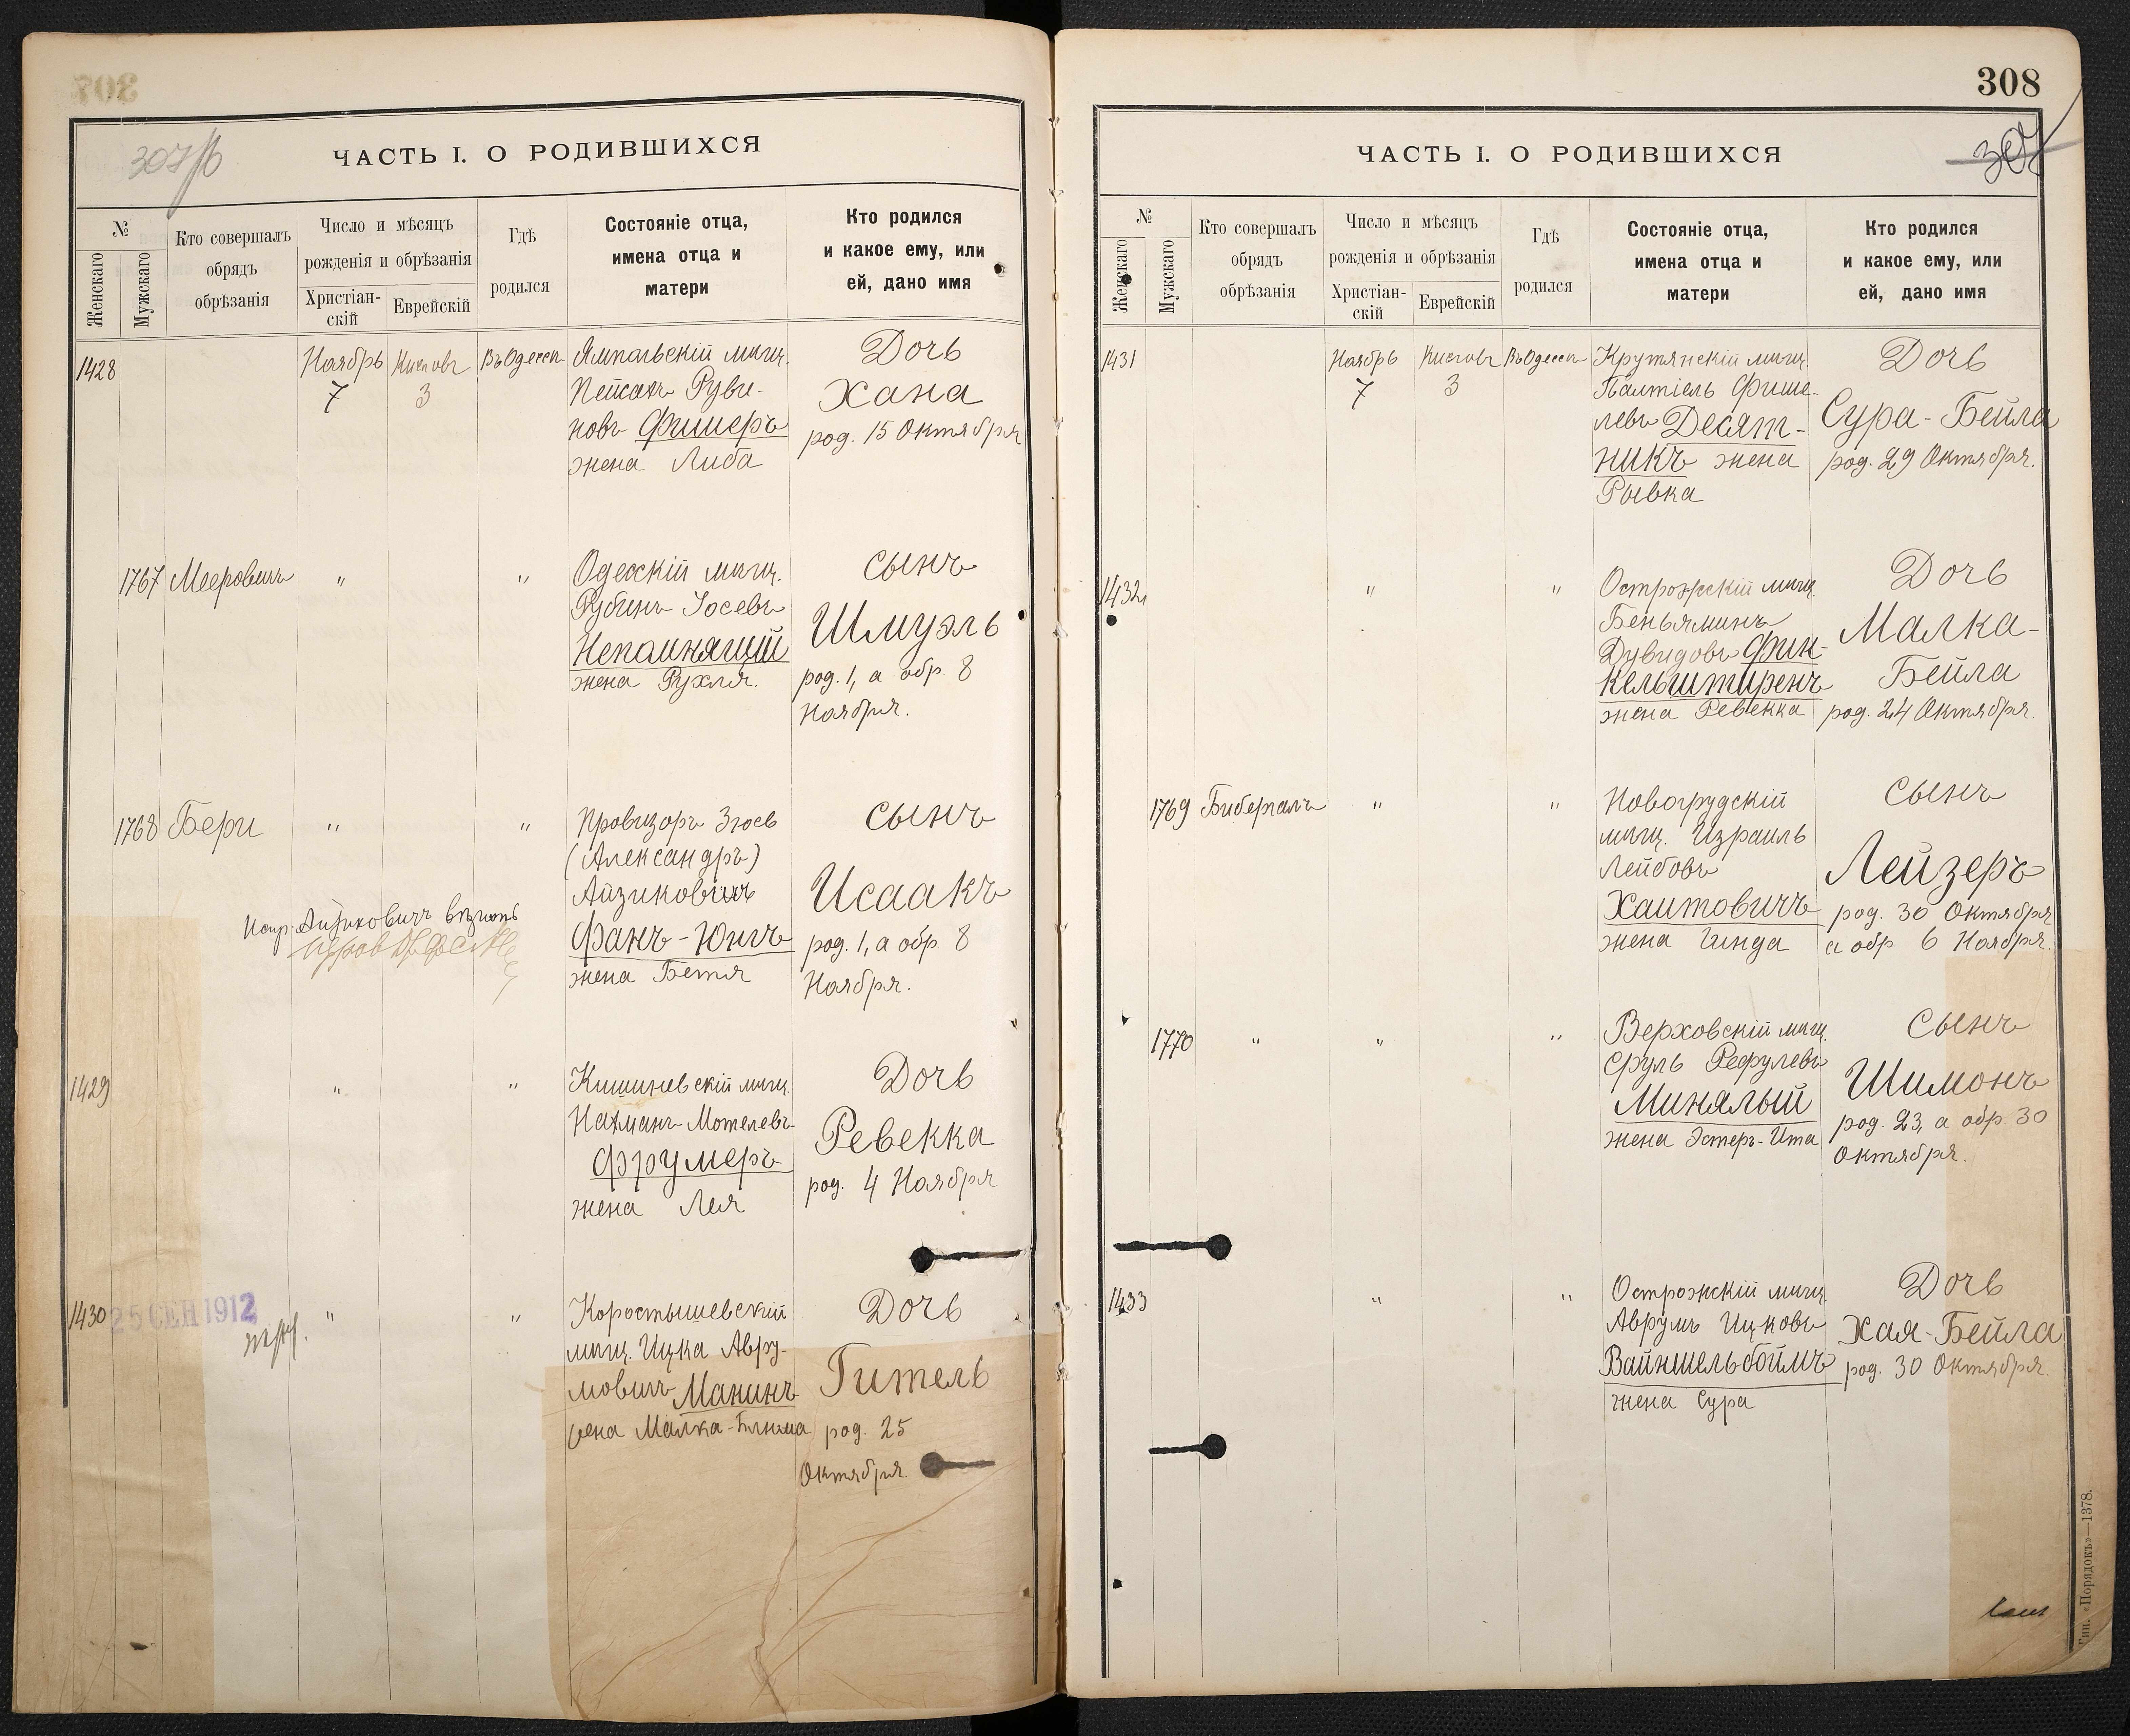 307
307/б
ЧАСТЬ I. О РОДИВШИХСЯ
№
Женскаго
Мужскаго
Кто совершалъ
обрядъ
обрѣзанія
Число и мѣсяцъ
рожденія и обрѣзанія
Христіан-
скій
Еврейскій
Гдѣ
родился
Состояніе отца,
имена отца и
матери
Кто родился
и какое ему, или
ей, дано имя
1428
Ноябрь
7
Кислевъ
3
Въ Одессѣ
Ямпольскій мѣщ.
Пейсахъ Руви-
новъ Фишеръ
жена Либа
Дочь
Хана
род. 15 Октября
1767 Мееровичъ " "
Одесскій мѣщ.
Рубинъ Іосевъ
Непомнящій
жена Рухля.
Сынъ
Шмуэль
род. 1, а обр. 8
Ноября.
1768 Бери " "
Испр. Айзиковичъ вѣрно
Провизоръ Зюсь
(Александръ)
Айзиковичъ
Фанъ-Юнгъ
жена Бетя
Сынъ
Исаакъ
род. 1, а обр. 8
Ноября.
1429 " "
Кишиневскій мѣщ.
Нахманъ Мотелевъ
Фрумеръ
жена Лея
Дочь
Ревекка
род. 4 Ноября
1430
25 СЕН 1912
" "
Коростышевскій
мѣщ. Ицка Авру-
мовичъ Манинъ
жена Малка-Блюма
Дочь
Гитель
род. 25
Октября.
308
307
ЧАСТЬ I. О РОДИВШИХСЯ
№
Женскаго
Мужскаго
Кто совершалъ
обрядъ
обрѣзанія
Число и мѣсяцъ
рожденія и обрѣзанія
Христіан-
скій
Еврейскій
Гдѣ
родился
Состояніе отца,
имена отца и
матери
Кто родился
и какое ему, или
ей, дано имя
1431
Ноябрь
7
Кислевъ
3
Въ Одессѣ
Крутянскій мѣщ.
Палтіель Фише-
левъ Десят-
никъ жена
Рывка
Дочь
Сура-Бейла
род. 29 Октября.
1432 " "
Острожскій мѣщ.
Беньяминъ
Дувидовъ Фин-
кельштиренъ
жена Ревекка
Дочь
Малка-
Бейла
род. 24 Октября.
1769 Бибергалъ " "
Новогрудскій
мѣщ. Израиль
Лейбовъ
Хаитовичъ
жена Гинда
Сынъ
Лейзеръ
род. 30 Октября
а обр. 6 Ноября.
1770 " " "
Верховскій мѣщ.
Сруль Рефулевъ
Минялый
жена Эстеръ-Ита
Сынъ
Шимонъ
род. 23, а обр. 30
Октября.
1433 " "
Острожскій мѣщ.
Аврумъ Ицковъ
Вайншельбоймъ
жена Сура
Дочь
Хая-Бейла
род. 30 Октября.
Тип. «Порядокъ»—1378.